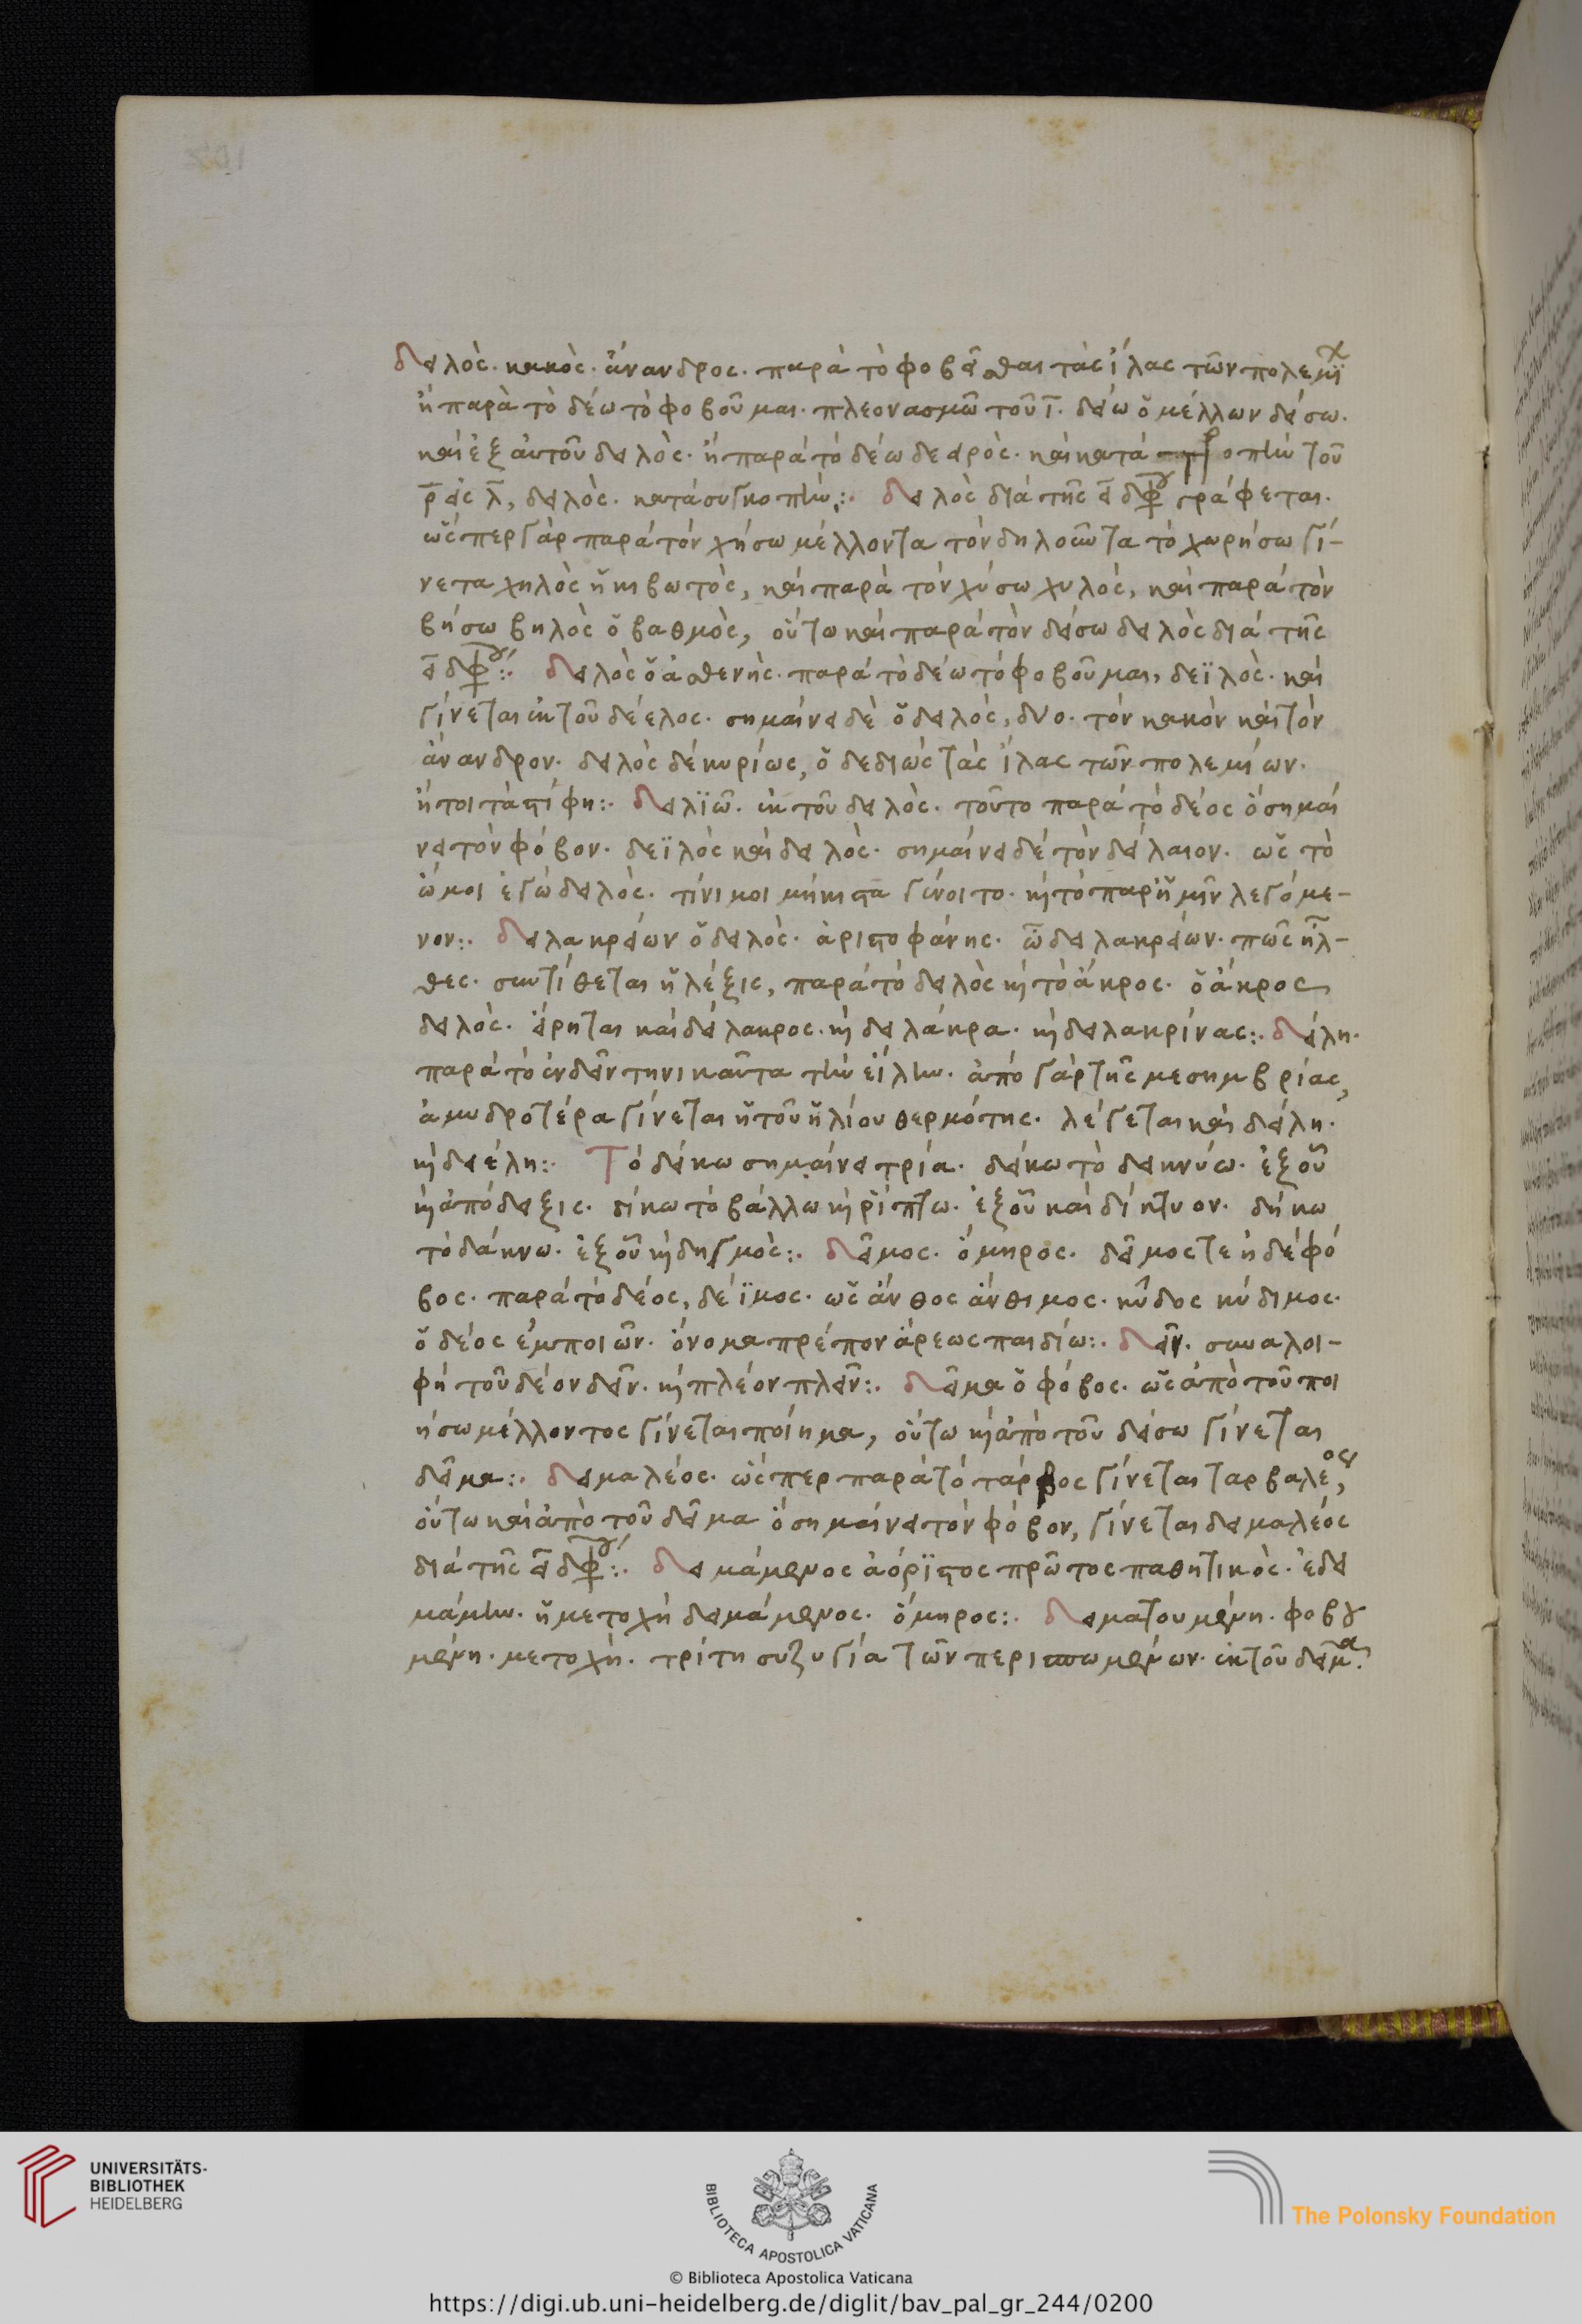 δειλὸς. κακὸς. ἄνανδρος. παρὰ τὸ φοβεῖσθαι τὰς ἴλας τῶν πολεμΐ
ἢ παρὰ τὸ δέω τὸ φοβοῦμαι. πλεονασμῶ τοῦ ι. δείω ὁ μέλλων δείσω.
καὶ ἐξ αὐτοῦ δειλὸς. ἢ παρὰ τὸ δέω δεερὸς. καὶ κατὰ τροπὴν τοῦ
ρ εἰς λ, δειλὸς. κατὰ συγκοπὴν:. δειλὸς διὰ τῆς ει διφ γράφεται.
ὥσπερ γὰρ παρὰ τὸν χήσω μέλλοντα τὸν δηλοῦντα τὸ χωρήσω γί-
νεται χηλὸς ἡ κιβωτὸς, καὶ παρὰ τὸν χύσω χυλὸς, καὶ παρὰ τὸν
βήσω βηλὸς ὁ βαθμὸς, οὕτω καὶ παρὰ τὸν δείσω δειλὸς διὰ τῆς
ει διφ:. δειλὸς ὁ ἀσθενὴς. παρὰ τὸ δέω τὸ φοβοῦμαι, δεϊλὸς. καὶ
γίνεται ἐκ τοῦ δέελος. σημαίνει δὲ ὁ δειλὸς, δύο. τὸν κακὸν καὶ τὸν
ἄνανδρον. δειλὸς δὲ κυρίως, ὁ δεδιὼς τὰς ἴλας τῶν πολεμίων.
ἤτοι τὰ στίφη:. δειλϊῶ. ἐκ τοῦ δειλὸς. τοῦτο παρὰ τὸ δέος ὃ σημαί
νει τὸν φόβον. δεϊλὸς καὶ δειλὸς. σημαίνει δὲ τὸν δείλαιον. ὡς τὸ
ὤμοι ἐγὼ δειλὸς. τίνι μοι μήκιστα γένοιτο. καὶ τὸ παρ' ἡμῖν λεγόμε-
νον:. δειλακρείων ὁ δειλὸς. ἀριστοφάνης. ὦ δειλακρείων. πῶς ἦλ-
θες. συντίθεται ἡ λέξις, παρὰ τὸ δειλὸς καὶ τὸ ἄκρος. ὁ ἄκρος
δειλὸς. εἴρηται καὶ δείλακρος. καὶ δειλάκρα. καὶ δειλακρίνας:. δείλη.
παρὰ τὸ ἐνδεῖν τηνικαῦτα τὴν εἵλην. ἀπὸ γὰρ τῆς μεσημβρίας,
ἀμυδροτέρα γίνεται ἡ τοῦ ἡλίου θερμότης. λέγεται καὶ δείλη.
καὶ δειέλη:. Τὸ δείκω σημαίνει τρία. δείκω τὸ δεικνύω. ἐξ οὗ
καὶ ἀπόδειξις. δίκω τὸ βάλλω καὶ ῥίπτω. ἐξ οὗ καὶ δίκτυον. δήκω
τὸ δάκνω. ἐξ οὗ καὶ δηγμὸς:. δεῖμος. ὅμηρος. δεῖμος τε ἠδὲ φό
βος. παρὰ τὸ δέος, δέϊμος. ὡς ἄνθος ἄνθιμος. κῦδος κύδιμος.
ὁ δέος ἐμποιῶν. ὄνομα πρέπον ἄρεως παιδίω:. δεῖν. συναλοι-
φὴ τοῦ δέον δεῖν. καὶ πλέον πλεῖν:. δεῖμα ὁ φόβος. ὡς ἀπὸ τοῦ ποι
ήσω μέλλοντος γίνεται ποίημα, οὕτω καὶ ἀπὸ τοῦ δείσω γίνεται
δεῖμα:. δειμαλέος. ὥσπερ παρὰ τὸ τάρβος γίνεται ταρβαλέος,
οὕτω καὶ ἀπὸ τοῦ δεῖμα ὃ σημαίνει τὸν φόβον, γίνεται δειμαλέος
διὰ τῆς ει διφ:. δειμάμενος ἀόρϊστος πρῶτος παθητικὸς. ἐδει
μάμην. ἡ μετοχὴ δειμάμενος. ὅμηρος:. δειματουμένη. φοβου
μένη. μετοχὴ. τρίτη συζυγία τῶν περισπωμένων. ἐκ τοῦ δεῖμα.
UNIVERSITÄTS-
BIBLIOTHEK
HEIDELBERG
BIBLIOTECA APOSTOLICA VATICANA
The Polonsky Foundation
© Biblioteca Apostolica Vaticana
https://digi.ub.uni-heidelberg.de/diglit/bav_pal_gr_244/0200